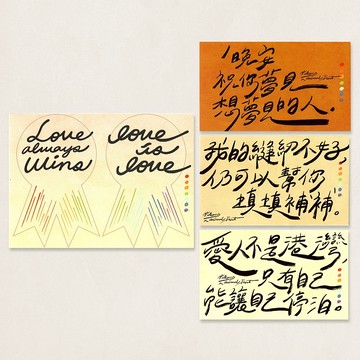 Love
always
Wins
love
is
love
晚安
祝你夢見
想夢見的人.
我的縫紉不好,
仍可以幫你
填填補補.
愛人不是港灣,
只有自己
能讓自己停泊。